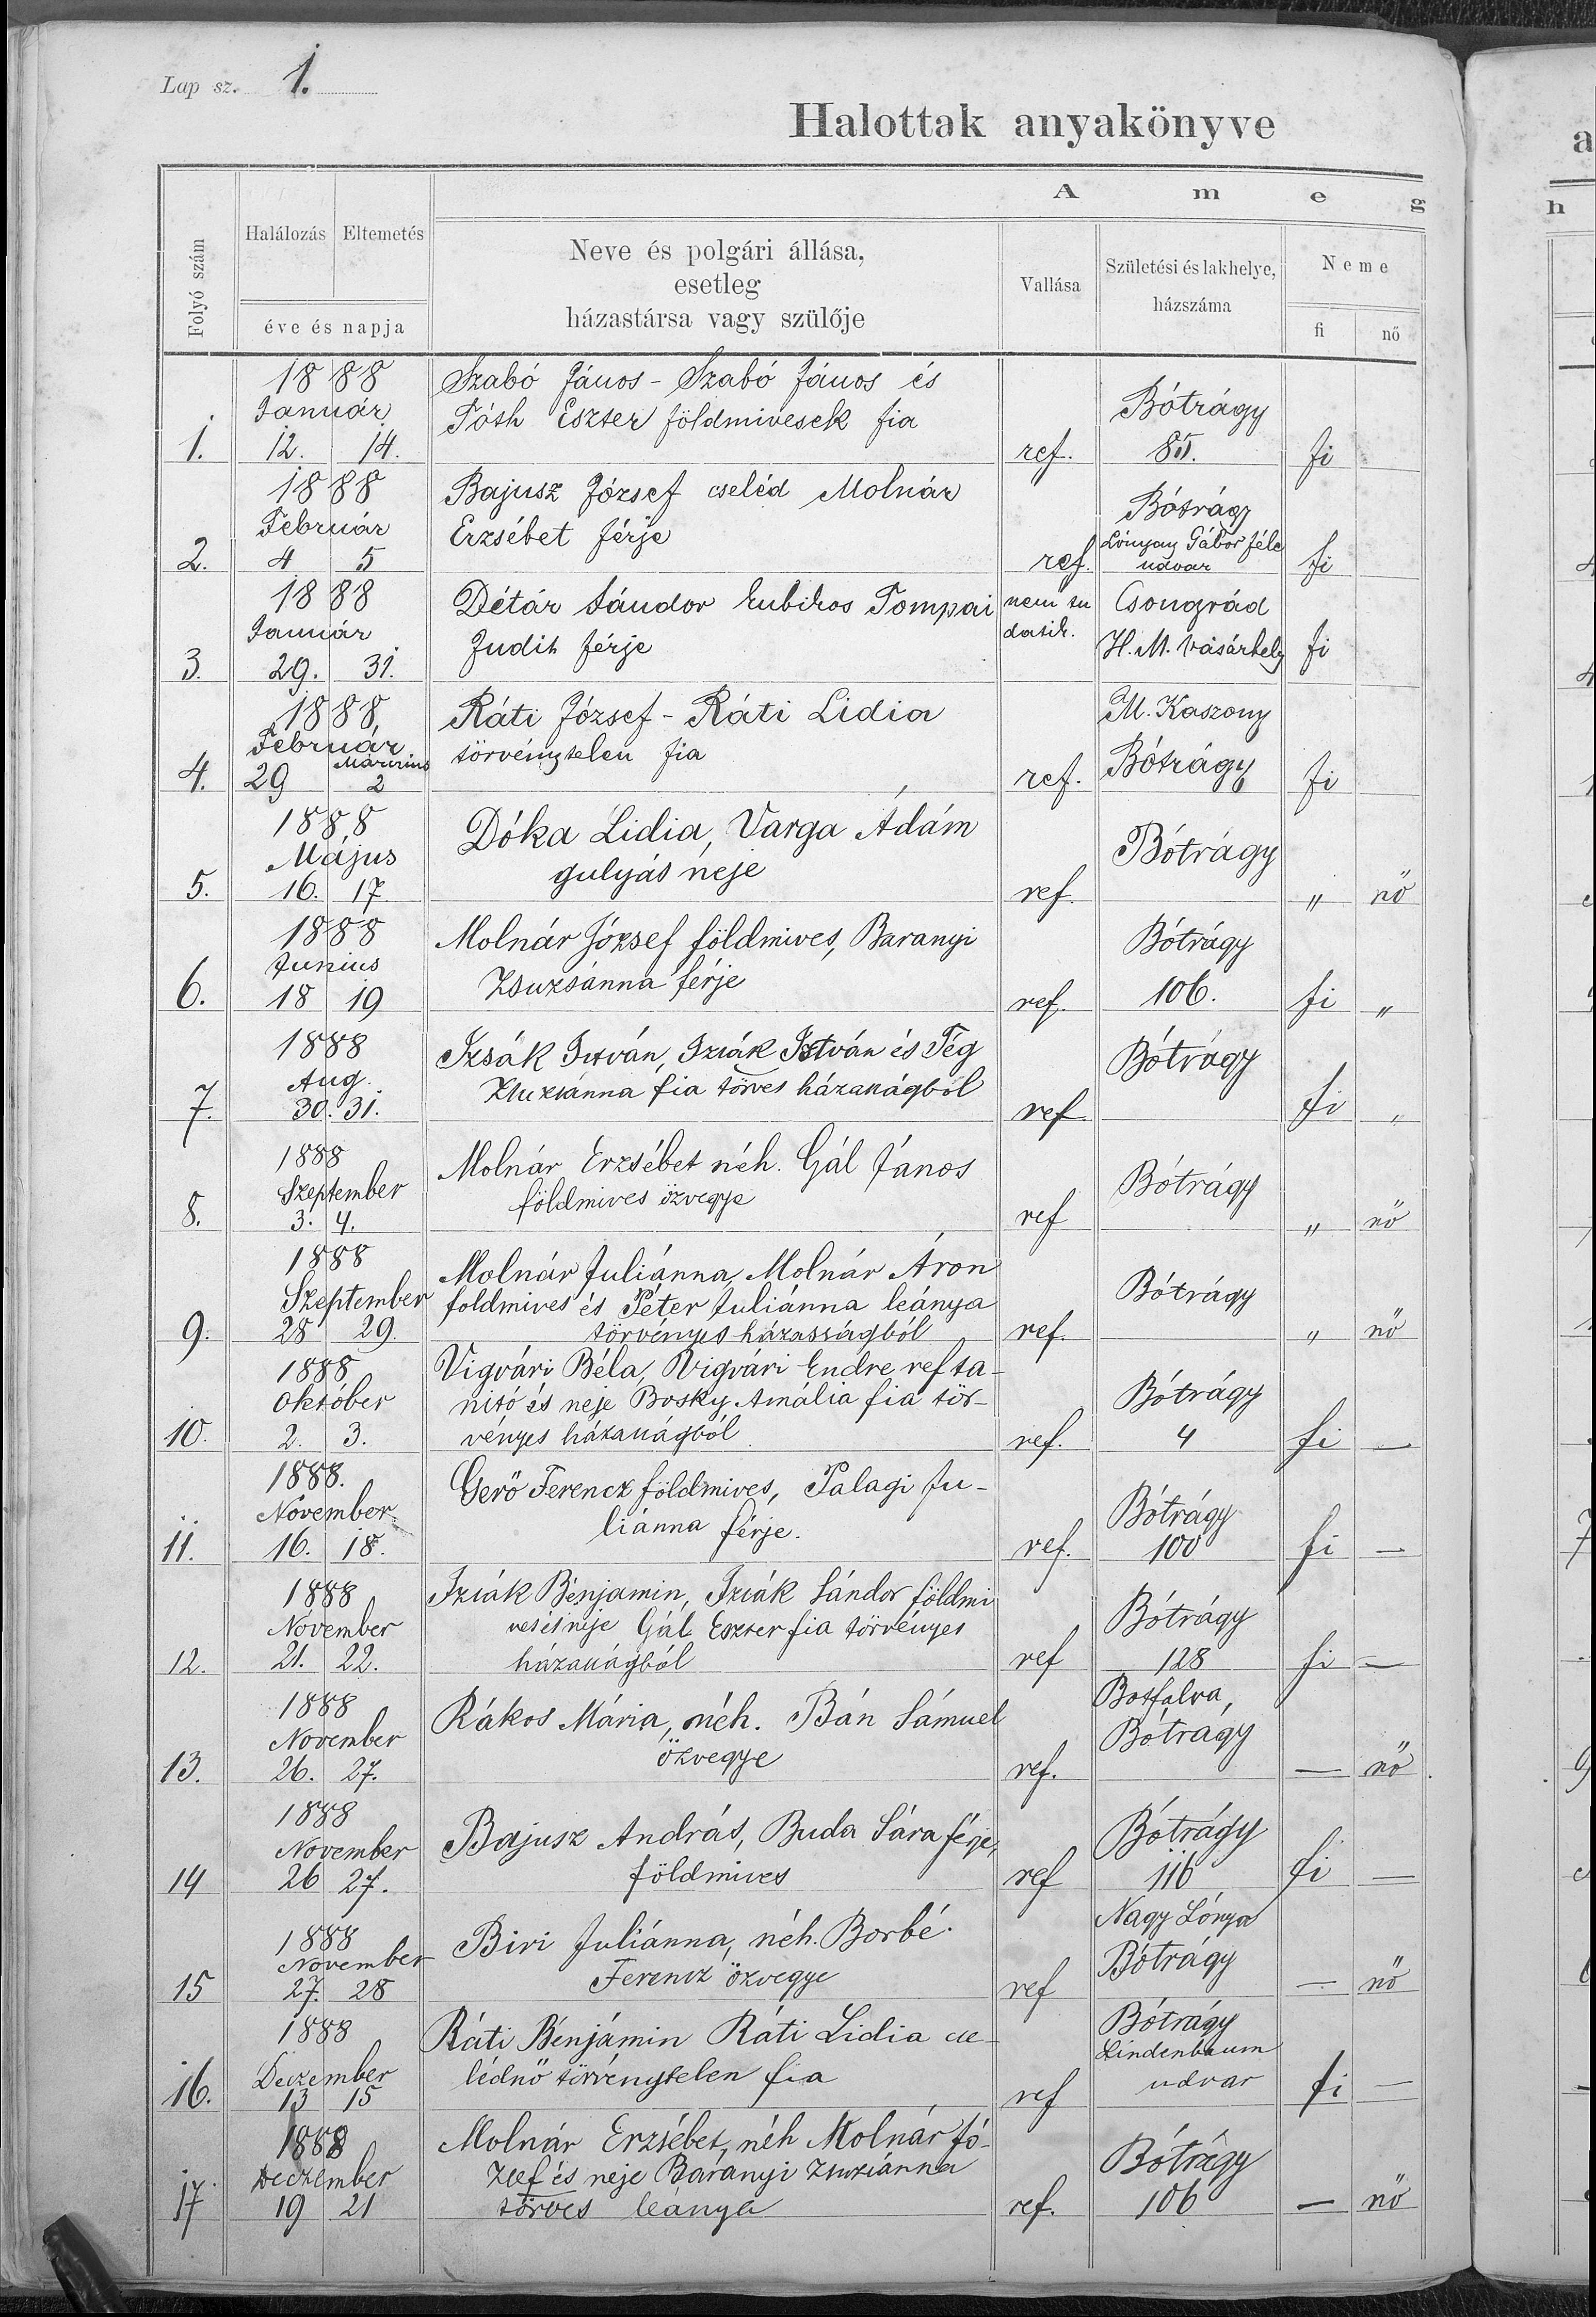 Lap sz. 1.
Halottak anyakönyve
A m e g
Folyó szám
Halálozás Eltemetés
éve és napja
Neve és polgári állása,
esetleg
házastársa vagy szülője
Vallása
Születési és lakhelye,
házszáma
Neme
fi nő
1888
Január
1. 12. 14.
Szabó János - Szabó János és
Tóth Eszter földmivesek fia
ref.
Bótrágy
85.
fi
1888
Február
2. 4 5
Bajusz József cseléd Molnár
Erzsébet férje
ref.
Bótrágy
Lónyay Gábor féle
udvar
fi
1888
Január
3. 29. 31.
Détár Sándor kubikos Tompai
Judit férje
nem tu
datik.
Csongrád
H. M. Vásárhely
fi
1888
Február Március
4. 29 2
Ráti József - Ráti Lidia
törvénytelen fia
ref.
M. Kaszony
Bótrágy
fi
1888
Május
5. 16. 17.
Dóka Lidia, Varga Ádám
gulyás neje
ref.
Bótrágy
" nö
1888
Junius
6. 18 19
Molnár József földmives, Baranyi
Zsuzsánna férje
ref.
Bótrágy
106.
fi "
1888
Aug.
7. 30. 31.
Izsák István, Izsák István és Tég
Zsuzsánna fia törves házasságból
ref
Bótrágy
fi "
1888
Szeptember
8. 3. 4.
Molnár Erzsébet néh. Gál János
földmives özvegye
ref
Bótrágy
" nö
1888
Szeptember
9. 28 29.
Molnár Juliánna, Molnár Áron
foldmives és Péter Juliánna leánya
törvényes házasságból
ref.
Bótrágy
" nö
1888
Október
10. 2. 3.
Vigvári Béla, Vigvári Endre ref ta-
nitó és neje Bosky Amália fia tör-
vényes házasságból
ref.
Bótrágy
4
fi —
1888.
November
11. 16. 18.
Gerö Ferencz földmives, Palagi Ju-
liánna férje.
ref.
Bótrágy
100
fi —
1888
November
12. 21. 22.
Izsák Benjamin, Izsák Sándor földmi
ves és neje Gál Eszter fia törvényes
házasságból
ref
Bótrágy
128
fi —
1888
November
13. 26. 27.
Rákos Mária, néh. Bán Sámuel
özvegye
ref.
Botfalva,
Bótrágy
— nö
1888
November
14 26 27.
Bajusz András, Buda Sára férje,
földmives
ref
Bótrágy
116
fi —
1888
November
15 27. 28
Biri Juliánna, néh. Borbé
Ferencz özvegye
ref
Nagy Lónya
Bótrágy
— nö
1888
Deczember
16. 13 15
Ráti Benjámin Ráti Lidia cse-
lédnö törvénytelen fia
ref
Bótrágy
Lindenbaum
udvar
fi —
1888
Deczember
17. 19 21
Molnár Erzsébet, néh Molnár Jó-
zsef és neje Baranyi Zsuzsánna
törves leánya
ref.
Bótrágy
106
— nö